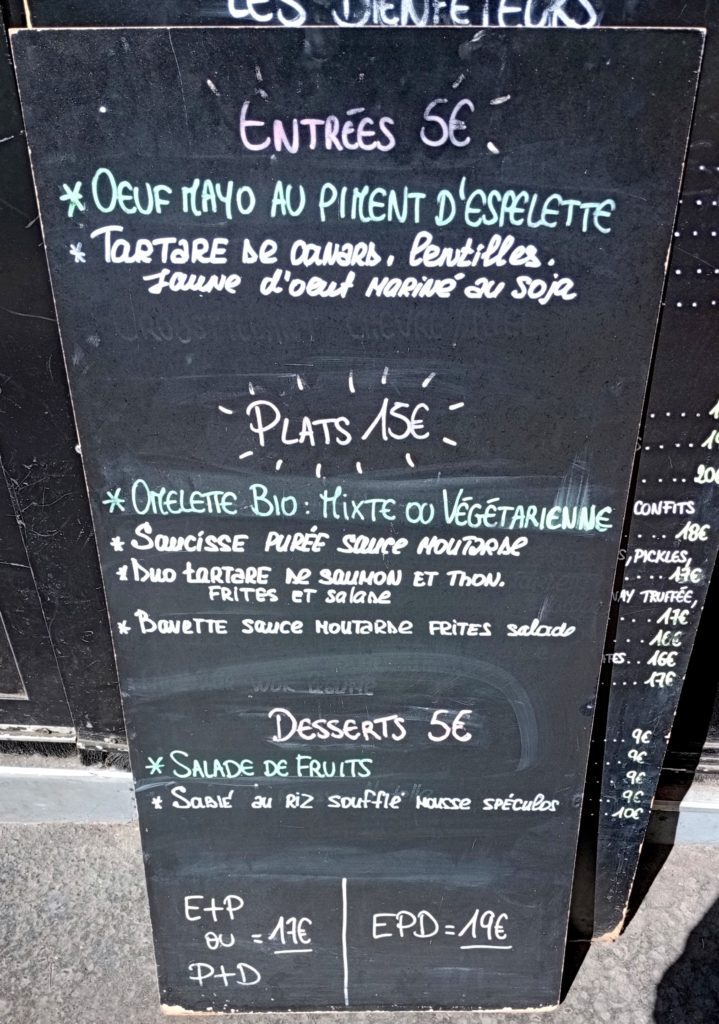 LES BIENFETEURS
ENTRÉES 5€
* OEUF MAYO AU PIMENT D'ESPELETTE
* TARTARE DE CANARD, lentilles.
JAUNE d'oeuf MARINÉ au soja
PLATS 15€
* OMELETTE BIO : MIXTE OU VÉGÉTARIENNE
* SAUCISSE PURÉE SAUCE MOUTARDE
* DUO TARTARE DE SAUMON ET THON.
FRITES ET salade
* BAVETTE sauce MOUTARDE FRITES salade
DESSERTS 5€
* SALADE DE FRUITS
* SABLÉ au RIZ soufflé MOUSSE SPÉCULOS
E+P
ou = 17€
P+D
EPD = 19€
CONFITS
... 18€
PICKLES,
.... 17€
TRUFFÉE,
... 17€
... 16€
.. 16€
... 17€
.. 9€
.. 9€
9€
.. 9€
.. 10€